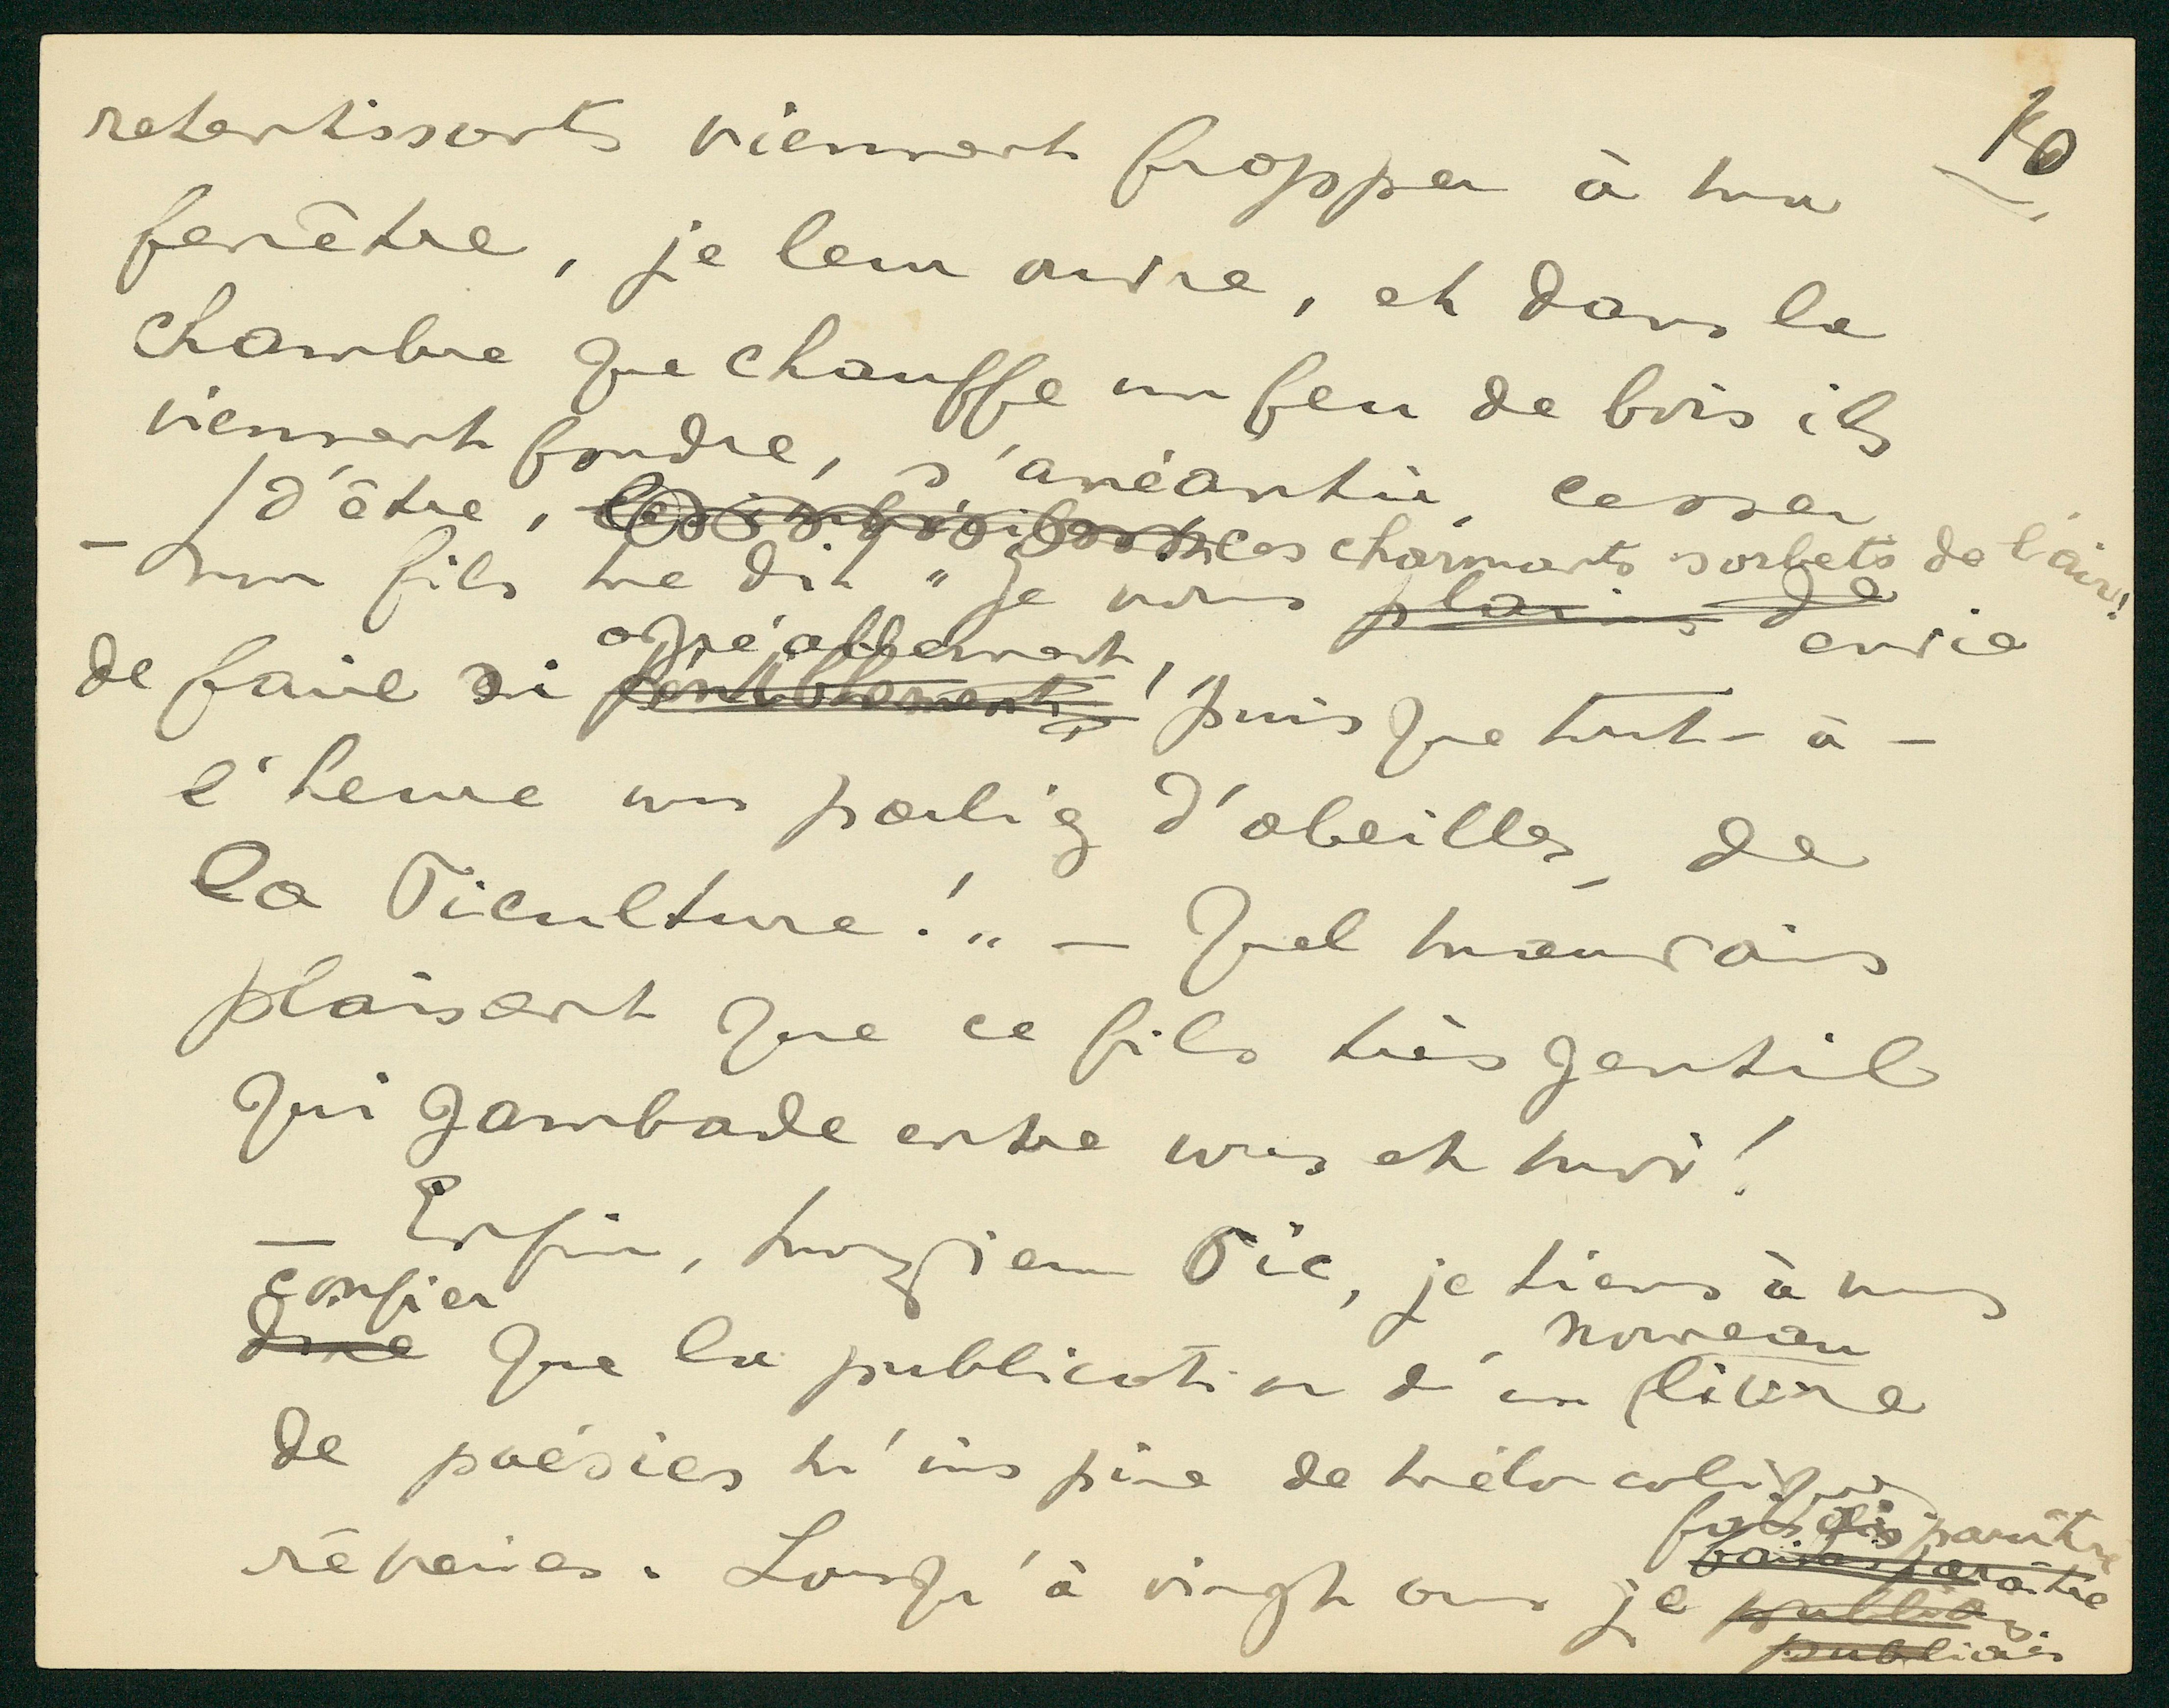 10
retentissants viennent frapper à ma
fenêtre, je leur ouvre, et dans la
chambre que chauffe un feu de bois ils
viennent fondre, s'anéantir, cesser
d'être, ces charmants sorbets de l'air!
– Mon fils me dit "Je vous plains de envie
agréablement,
de faire si péniblement, puisque tout-à-
l'heure vous parliez d'abeilles, de
la Piculture!" – Quel mauvais
plaisant que ce fils très gentil
qui gambade entre vous et moi!
– Enfin, monsieur Pic, je tiens à vous
confier nouveau
dire que la publication d'un livre
de poésies m'inspire de mélancoliques
fis paraître
faisais paraître
rêveries. Lorsqu'à vingt ans je publiai
publiais